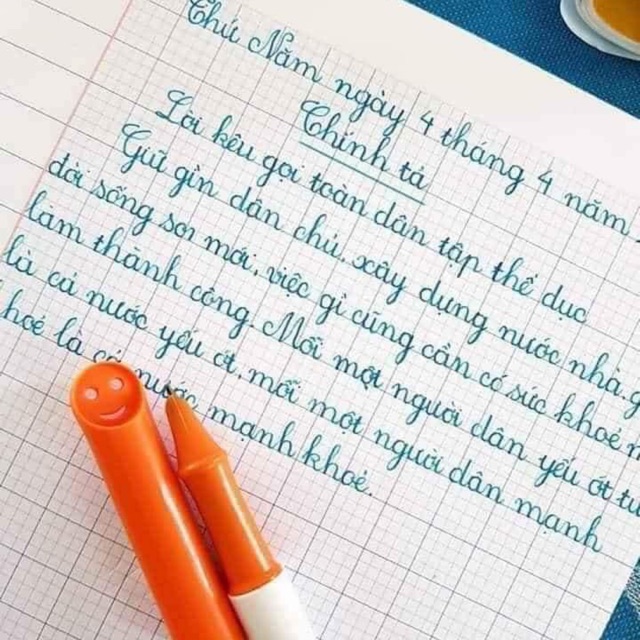 Thứ Năm ngày 4 tháng 4 năm
Chính tả
Lời kêu gọi toàn dân tập thể dục
Giữ gìn dân chủ, xây dựng nước nhà, g
đời sống sới mới, việc gì cũng cần có sức khoẻ m
làm thành công. Mỗi một người dân yếu ớt tứ
là cả nước yếu ớt, mỗi một người dân mạnh
khoẻ là cả nước mạnh khoẻ.